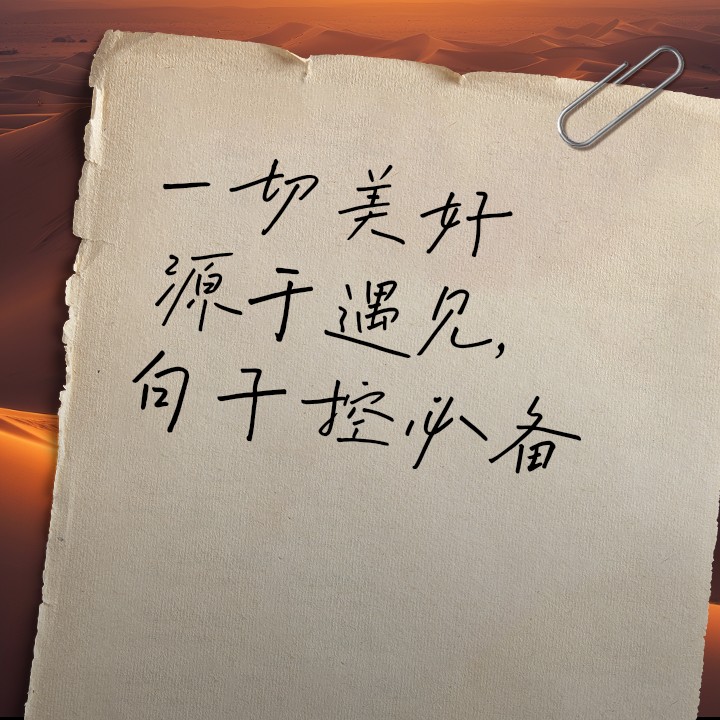 一切美好
源于遇见，
句子控必备